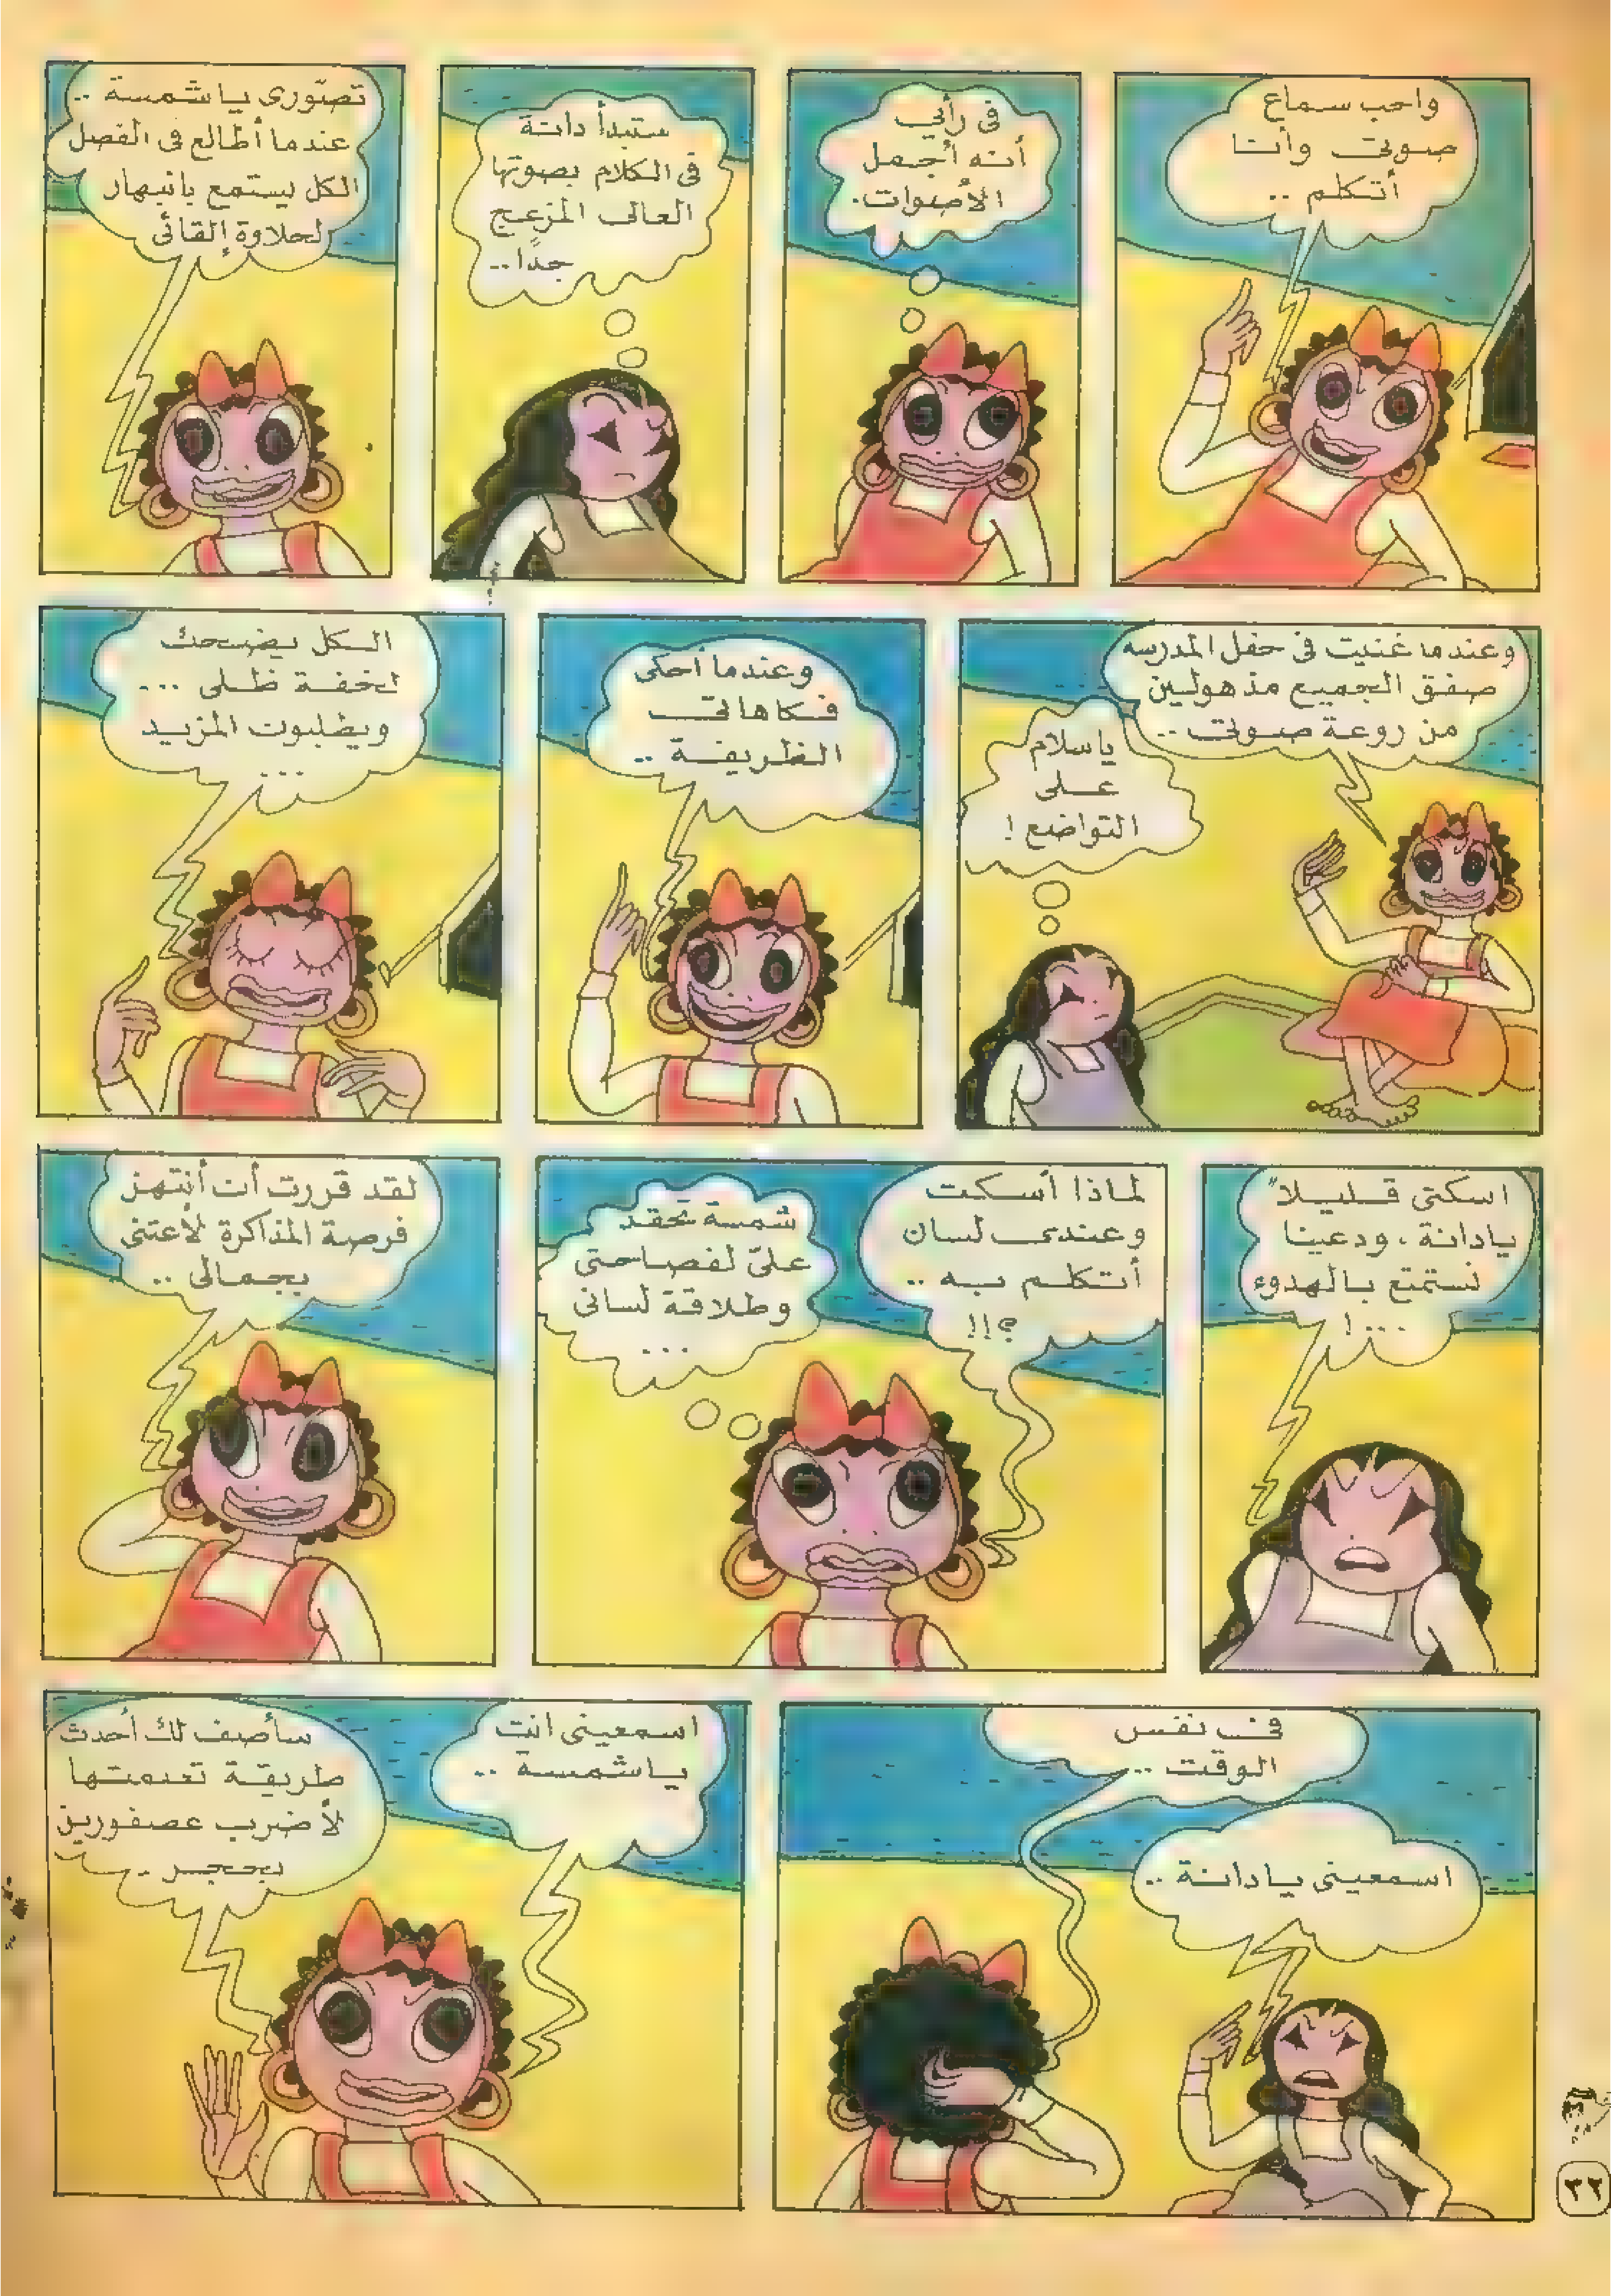 واحب سماع
صوتى وأنا
أتكلم ..
فى رأيي
أنه أجمل
الأصوات.
ستبدأ دانة
فى الكلام بصوتها
العالى المزعج
جدًا..
تصوّرى ياشمسة ..
عندما أطالع فى الفصل
الكل يستمع بانبهار
لحلاوة إلقائى
وعندما غنيت فى حفل المدرسه
صفق الجميع مذهولين
من روعة صوتى ..
ياسلام
على
التواضع !
وعندما أحكى
فكاهاتى
الظريفة ..
الكل يضحك
لخفة ظلى ...
ويطلبون المزيد
...
اسكتى قليلاً
يادانة ، ودعينا
نستمتع بالهدوء
...!
لماذا أسكت
وعندى لسان
أتكلم به ..
؟!!
شمسة تحقد
علىّ لفصاحتى
وطلاقة لسانى
...
لقد قررت أن أنتهز
فرصة المذاكرة لأعتنى
بجمالى ..
فى نفس
الوقت ..
اسمعينى يادانة ..
اسمعينى انت
ياشمسة ..
سأصف لك أحدث
طريقة تعلمتها
لأضرب عصفورين
بحجر ..
٢٢